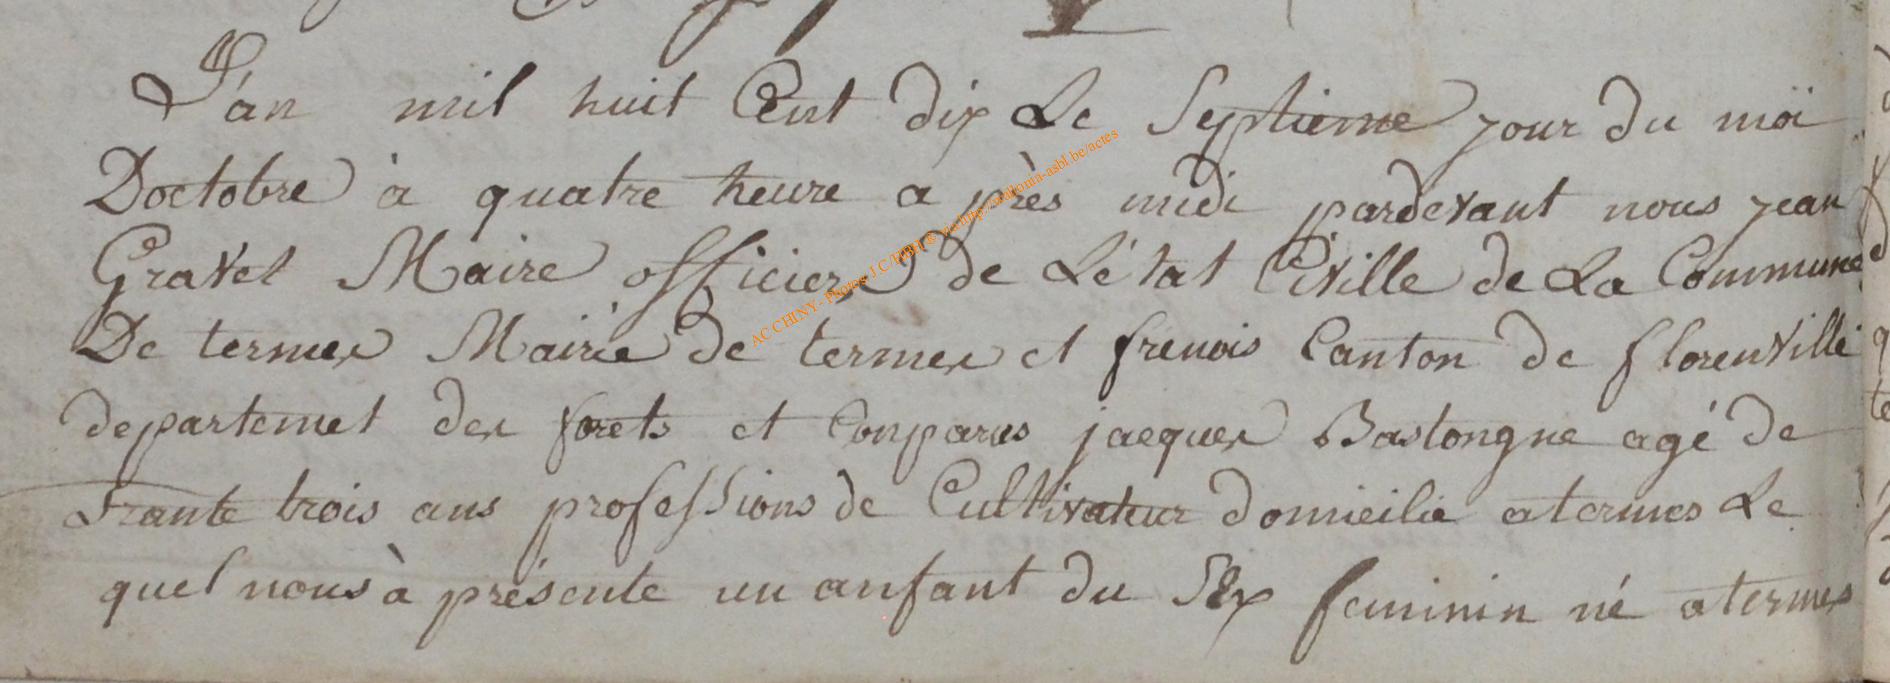 L'an mil huit Cent dix Le Septieme jour du moi
Doctobre à quatre heure a près midi pardevant nous jean
Gravet Maire officier de Létat Civille de La Commune
De termes Mairie de termes et frenois Canton de florenville
departemet des forets et Conparus jacques Bastongne agé de
trante trois ans professions de Cultivateur domicilie a termes Le
quel nous à présente un anfant du SEx feminin né a termes
AC CHINY - Photos J.C/